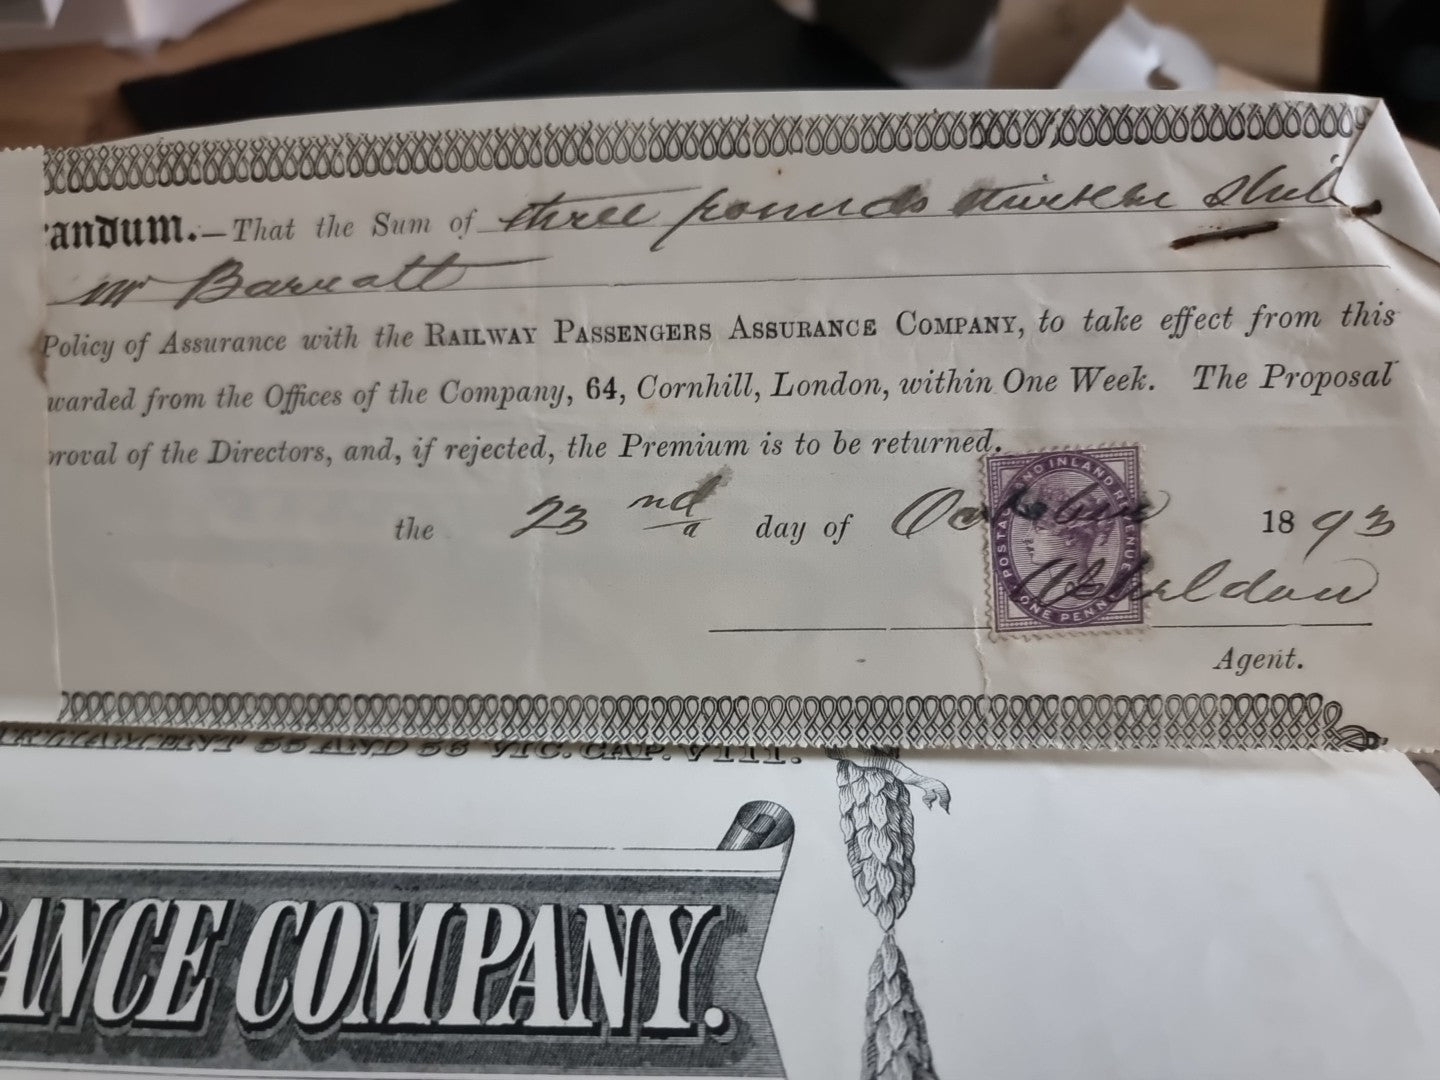 andum.—That the Sum of three pounds thirteen Shil
Mr Barratt
Policy of Assurance with the RAILWAY PASSENGERS ASSURANCE COMPANY, to take effect from this
warded from the Offices of the Company, 64, Cornhill, London, within One Week. The Proposal
roval of the Directors, and, if rejected, the Premium is to be returned.
the 23 nd day of October 1893
POSTAGE AND INLAND REVENUE
ONE PENNY
Agent.
RLIAMENT 55 AND 56 VIC. CAP. VIII.
ANCE COMPANY.